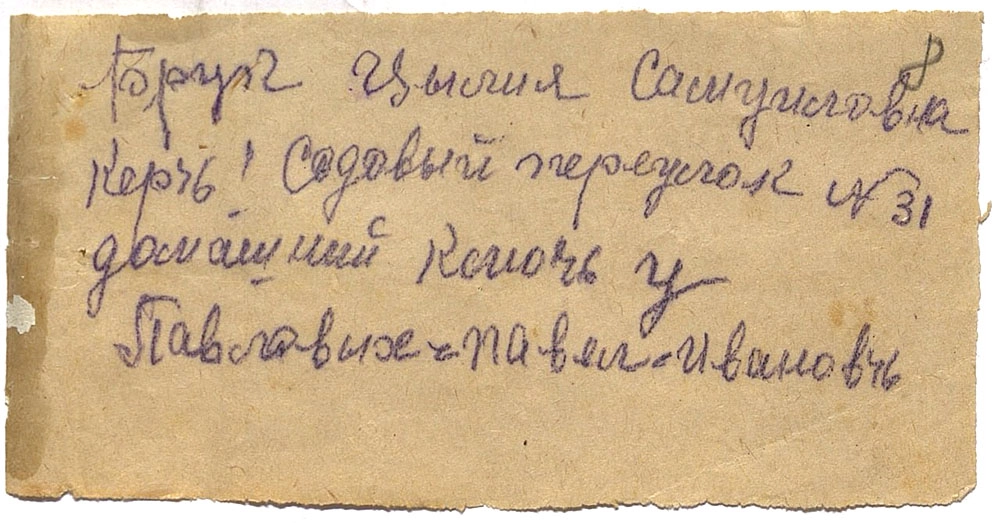 Брух Цылия Самуиловна
Керчь! Садовый переулок № 31
домашний ключь у
Павловых - Павел - Ивановчь